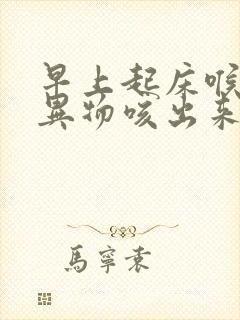 早上起床喉
异物咳出来
馬寧素